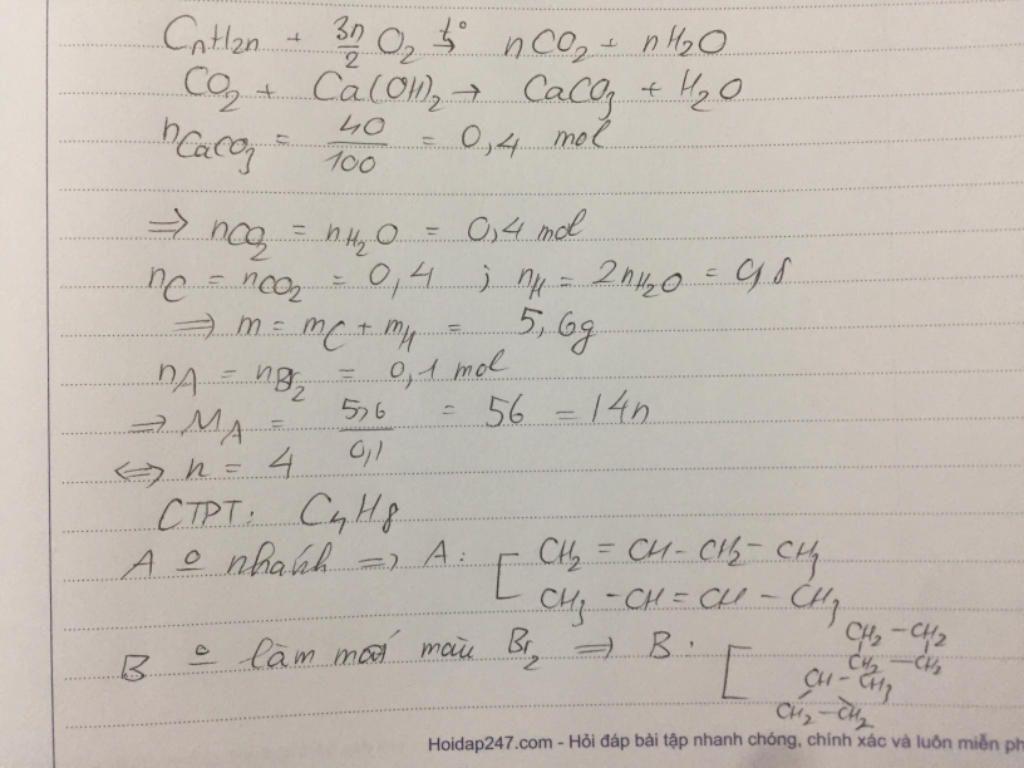 CnH2n + 3n/2 O2 t° → nCO2 + nH2O
CO2 + Ca(OH)2 → CaCO3 + H2O
nCaCO3 = 40/100 = 0,4 mol
=> nCO2 = nH2O = 0,4 mol
nC = nCO2 = 0,4 ; nH = 2nH2O = 0,8
=> m = mC + mH = 5,6g
nA = nBr2 = 0,1 mol
=> MA = 5,6/0,1 = 56 = 14n
<=> n = 4
CTPT: C4H8
A o nhánh => A: [ CH2 = CH - CH2 - CH3
CH3 - CH = CH - CH3
B o làm mất màu Br2 => B: [ CH2 - CH2
CH2 - CH2
CH - CH3
CH2 - CH2
Hoidap247.com - Hỏi đáp bài tập nhanh chóng, chính xác và luôn miễn ph